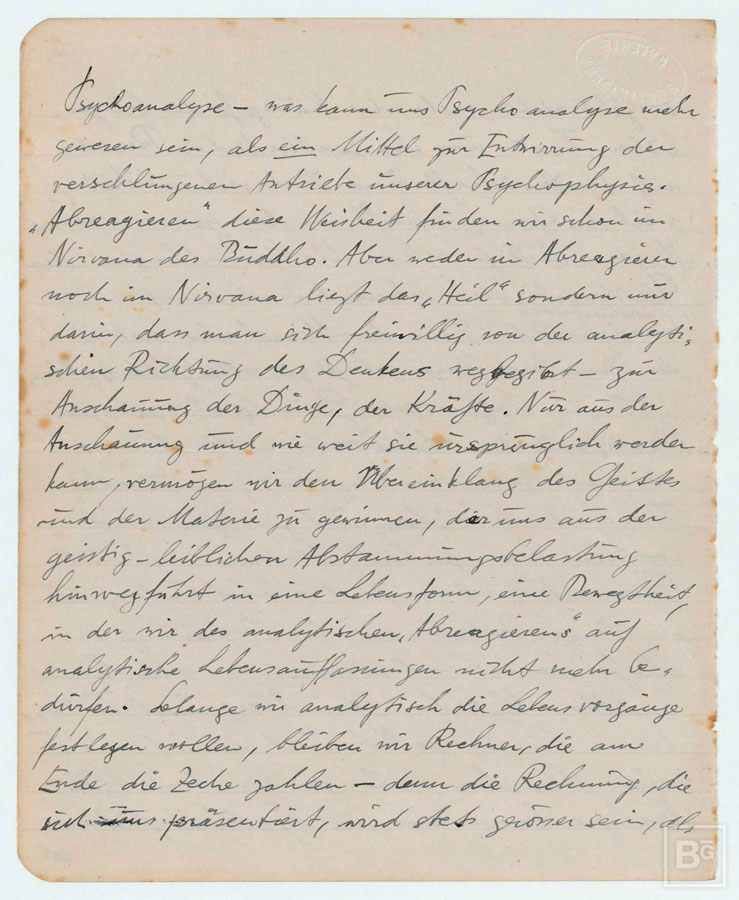 Psychoanalyse – was kann uns Psychoanalyse mehr
gewesen sein, als ein Mittel zur Entwirrung der
verschlungenen Antriebe unserer Psychophysis.
„Abreagieren" diese Weisheit finden wir schon im
Nirvana des Buddho. Aber weder im Abreagieren
noch im Nirvana liegt das „Heil" sondern nur
darin, dass man sich freiwillig von der analyti-
schen Richtung des Denkens wegbegibt – zur
Anschauung der Dinge, der Kräfte. Nur aus der
Anschauung und wie weit sie ursprünglich werden
kann, vermögen wir den Übereinklang des Geistes
und der Materie zu gewinnen, der uns aus der
geistig-leiblichen Abstammungsbelastung
hinwegführt in eine Lebensform, eine Bewegtheit,
in der wir des analytischen „Abreagierens" auf
analytische Lebensauffassungen nicht mehr be-
dürfen. Solange wir analytisch die Lebensvorgänge
festlegen wollen, bleiben wir Rechner, die am
Ende die Zeche zahlen – denn die Rechnung, die
sich uns präsentiert, wird stets grösser sein, als
GALERIE
BG